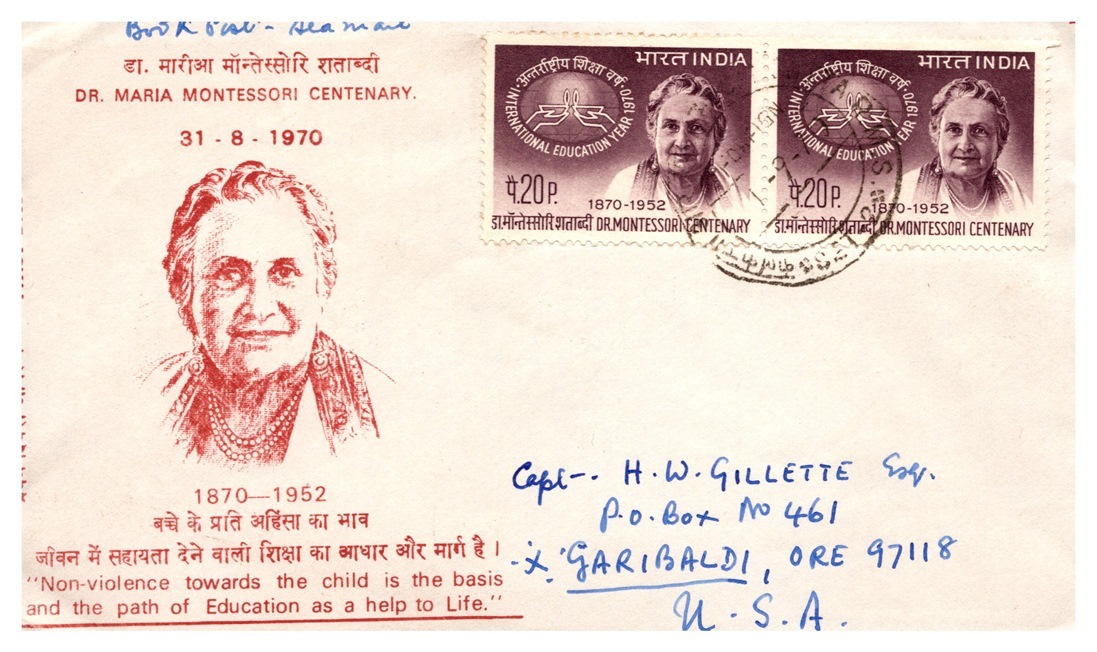 Book Post - Sea Mail
डा. मारीआ मॉन्तेस्सोरि शताब्दी
DR. MARIA MONTESSORI CENTENARY.
31 - 8 - 1970
1870—1952
बच्चे के प्रति अहिंसा का भाव
जीवन में सहायता देने वाली शिक्षा का आधार और मार्ग है।
"Non-violence towards the child is the basis
and the path of Education as a help to Life."
भारत INDIA
अन्तर्राष्ट्रीय शिक्षा वर्ष
INTERNATIONAL EDUCATION YEAR 1970
पै.20 P.
1870-1952
डा.मॉन्तेस्सोरि शताब्दी DR.MONTESSORI CENTENARY
भारत INDIA
अन्तर्राष्ट्रीय शिक्षा वर्ष
INTERNATIONAL EDUCATION YEAR 1970
पै.20 P.
1870-1952
डा.मॉन्तेस्सोरि शताब्दी DR.MONTESSORI CENTENARY
Capt-. H.W. GILLETTE Esq.
P.O. Box No 461
GARIBALDI, ORE 97118
U.S.A.